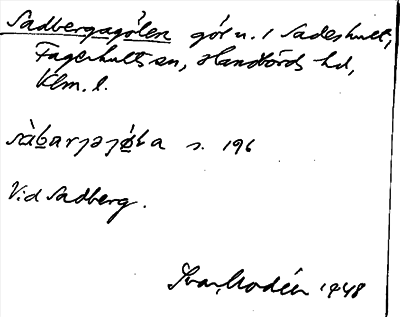 Sadbergagölen göl n. i Sadeshult,
Fagerhults sn, Handbörds hd,
Klm. l.
sàbarjəjø̀la s. 196
Vid Sadberg.
Ivar Modéer 1948